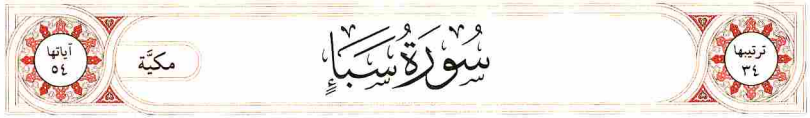 ترتيبها
٣٤
سُورَةُ سَبَإٍ
مكيَّة
آياتها
٥٤